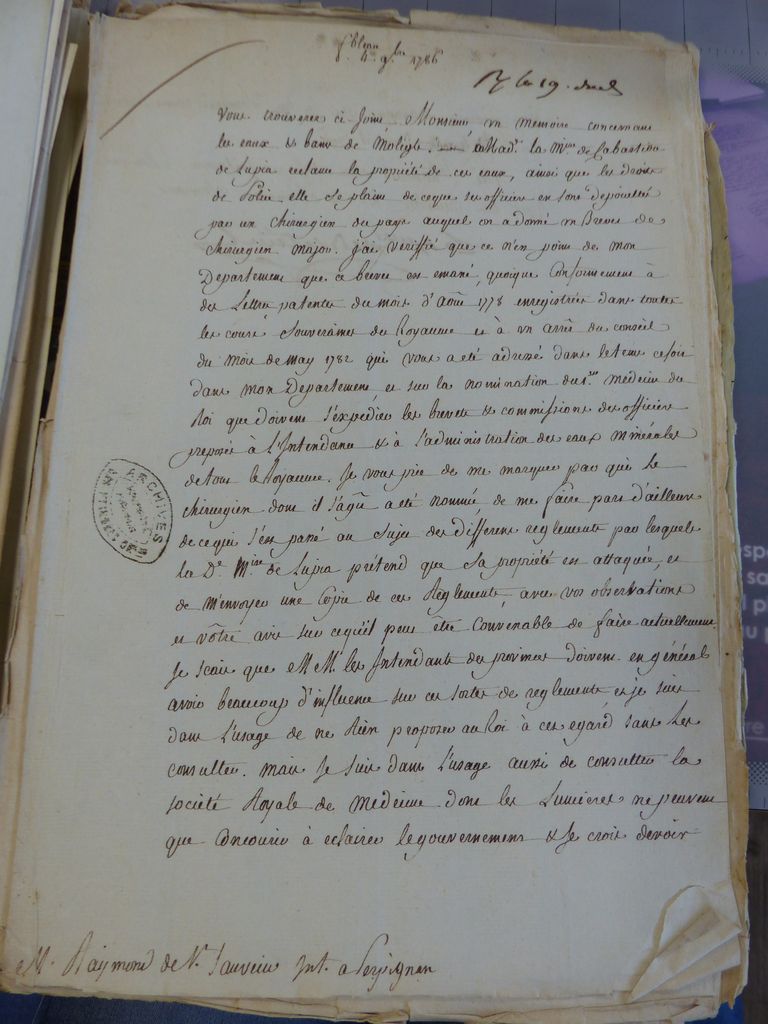 f.bleau 4. 9.bre 1786
R le 19. dud.
Vous trouverez ci Joint, Monsieur, un memoire concernant
les eaux & bains de Moligts. Mad.e la M.ise de Labastida
de Lupia reclame la propriété de ces eaux, ainsi que les droits
de Police. elle se plaint de ceque ses officiers en sont depouillés
par un chirurgien du pays auquel on a donné un Brevet de
chirurgien major. j'ai verifié que ce n'est point de mon
Departement que ce brevet est emané, quoique Conformement à
des Lettres patentes du mois d'Aout 1778 enregistrées dans toutes
les cours Souveraines du Royaume et à un arrêt du conseil
du mois de may 1782 qui vous a eté adressé dans letems cesoit
dans mon Departement et sur la nomination du s.r medecin du
Roi que doivent s'expedier les brevets & commissions des officiers
preposés à l'Intendance & à l'administration des eaux minérales
de tout le Royaume. Je vous prie de me marquer par qui le
chirurgien dont il s'agit a eté nommé, de me faire part d'ailleurs
de cequi s'est passé au Sujet des differens reglements par lesquels
la D.e M.ise de Lupia prétend que Sa propriété est attaquée, et
de m'envoyer une Copie de ces Réglements, avec vos observations
et vôtre avis sur cequ'il peut être Convenable de faire actuellement.
Je scais que MM. les Intendants des provinces doivent en général
avoir beaucoup d'influence sur ces sortes de reglements et je suis
dans l'usage de ne Rien proposer au Roi à cet egard sans les
consulter. mais Je suis dans l'usage aussi de consulter la
société Royale de Medecine dont les Lumieres ne peuvent
que Concourir à eclairer legouvernement & Je crois devoir
M. Raymond de S.t Sauveur Int. a Perpignan
ARCHIVES